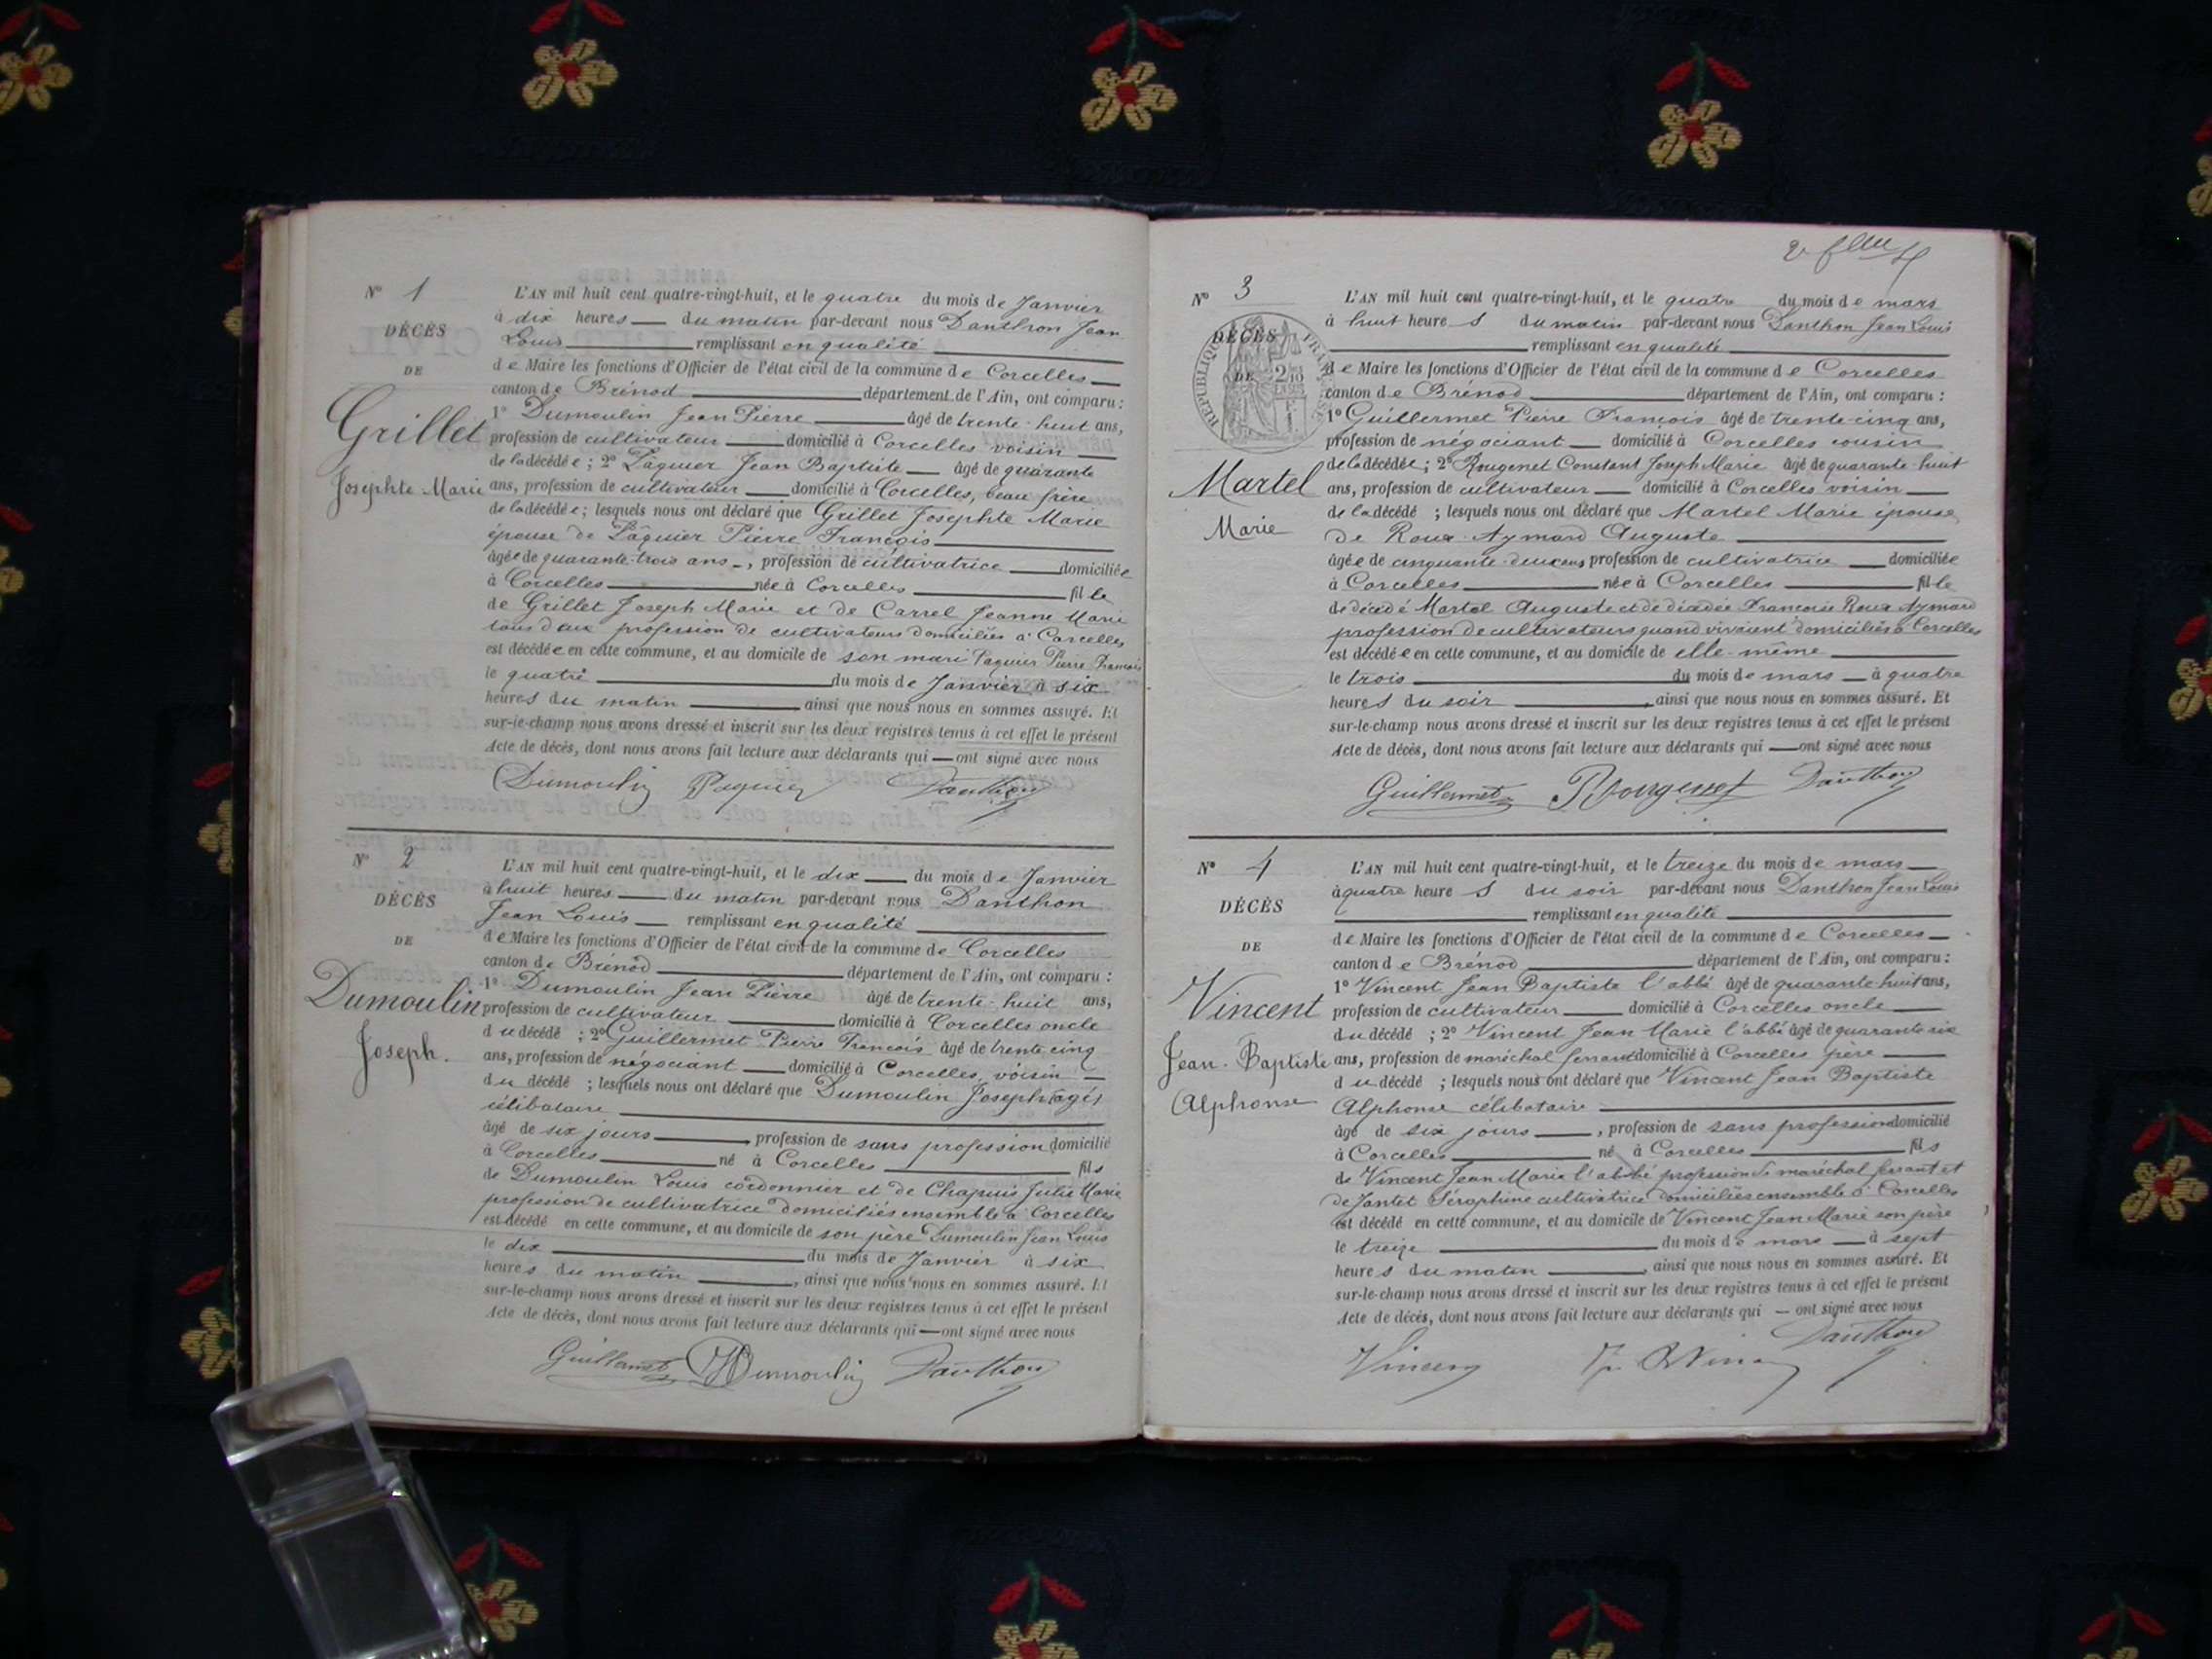 N° 1
DÉCÈS
DE
Grillet
Josephte Marie
L'AN mil huit cent quatre-vingt-huit, et le quatre du mois de Janvier
à dix heures du matin par-devant nous Danthon Jean
Louis remplissant en qualité
de Maire les fonctions d'Officier de l'état civil de la commune de Corcelles
canton de Brénod département de l'Ain, ont comparu :
1° Dumoulin Jean Pierre âgé de trente-huit ans,
profession de cultivateur domicilié à Corcelles voisin
de la décédée ; 2° Pâquier Jean Baptiste âgé de quarante
ans, profession de cultivateur domicilié à Corcelles, beau frère
de la décédée ; lesquels nous ont déclaré que Grillet Josephte Marie
épouse de Pâquier Pierre François
âgée de quarante-trois ans, profession de cultivatrice domiciliée
à Corcelles née à Corcelles fille
de Grillet Joseph Marie et de Carrel Jeanne Marie
tous deux profession de cultivateurs domiciliés à Corcelles
est décédée en cette commune, et au domicile de son mari Paquier Pierre François
le quatre du mois de Janvier à six
heures du matin ainsi que nous nous en sommes assuré. Et
sur-le-champ nous avons dressé et inscrit sur les deux registres tenus à cet effet le présent
Acte de décès, dont nous avons fait lecture aux déclarants qui ont signé avec nous
Dumoulin Paquier Danthon
N° 2
DÉCÈS
DE
Dumoulin
Joseph.
L'AN mil huit cent quatre-vingt-huit, et le dix du mois de Janvier
à huit heures du matin par-devant nous Danthon
Jean Louis remplissant en qualité
de Maire les fonctions d'Officier de l'état civil de la commune de Corcelles
canton de Brénod département de l'Ain, ont comparu :
1° Dumoulin Jean Pierre âgé de trente-huit ans,
profession de cultivateur domicilié à Corcelles oncle
du décédé ; 2° Guillermet Pierre François âgé de trente cinq
ans, profession de négociant domicilié à Corcelles, voisin
du décédé ; lesquels nous ont déclaré que Dumoulin Joseph
célibataire
âgé de six jours, profession de sans profession domicilié
à Corcelles né à Corcelles fils
de Dumoulin Louis cordonnier et de Chapuis Julie Marie
profession de cultivatrice domiciliés ensemble à Corcelles
est décédé en cette commune, et au domicile de son père Dumoulin Jean Louis
le dix du mois de Janvier à six
heures du matin, ainsi que nous nous en sommes assuré. Et
sur-le-champ nous avons dressé et inscrit sur les deux registres tenus à cet effet le présent
Acte de décès, dont nous avons fait lecture aux déclarants qui ont signé avec nous
Guillermet Dumoulin Danthon
N° 3
DÉCÈS
DE
RÉPUBLIQUE FRANÇAISE
Martel
Marie
L'AN mil huit cent quatre-vingt-huit, et le quatre du mois de mars
à huit heures du matin par-devant nous Danthon Jean Louis
remplissant en qualité
de Maire les fonctions d'Officier de l'état civil de la commune de Corcelles
canton de Brénod département de l'Ain, ont comparu :
1° Guillermet Pierre François âgé de trente-cinq ans,
profession de négociant domicilié à Corcelles cousin
de la décédée ; 2° Rougenet Constant Joseph Marie âgé de quarante-huit
ans, profession de cultivateur domicilié à Corcelles voisin
de la décédé ; lesquels nous ont déclaré que Martel Marie épouse
de Roux-Aymard Auguste
âgée de cinquante-deux ans profession de cultivatrice domiciliée
à Corcelles née à Corcelles fille
de décédé Martel Auguste et de décédée Françoise Roux Aymard
profession de cultivateurs quand vivaient domiciliés à Corcelles
est décédée en cette commune, et au domicile de elle-même
le trois du mois de mars à quatre
heures du soir, ainsi que nous nous en sommes assuré. Et
sur-le-champ nous avons dressé et inscrit sur les deux registres tenus à cet effet le présent
Acte de décès, dont nous avons fait lecture aux déclarants qui ont signé avec nous
Guillermet Rougenet Danthon
N° 4
DÉCÈS
DE
Vincent
Jean-Baptiste
Alphonse
L'AN mil huit cent quatre-vingt-huit, et le treize du mois de mars
à quatre heures du soir par-devant nous Danthon Jean Louis
remplissant en qualité
de Maire les fonctions d'Officier de l'état civil de la commune de Corcelles
canton de Brénod département de l'Ain, ont comparu :
1° Vincent Jean Baptiste l'abbé âgé de quarante huit ans,
profession de cultivateur domicilié à Corcelles oncle
du décédé ; 2° Vincent Jean Marie l'abbé âgé de quarante six
ans, profession de maréchal ferrant domicilié à Corcelles père
du décédé ; lesquels nous ont déclaré que Vincent Jean Baptiste
Alphonse célibataire
âgé de six jours, profession de sans profession domicilié
à Corcelles né à Corcelles fils
de Vincent Jean Marie l'abbé profession de maréchal ferrant et
de Jantet Séraphine cultivatrice domiciliés ensemble à Corcelles
est décédé en cette commune, et au domicile de Vincent Jean Marie son père
le treize du mois de mars à sept
heures du matin, ainsi que nous nous en sommes assuré. Et
sur-le-champ nous avons dressé et inscrit sur les deux registres tenus à cet effet le présent
Acte de décès, dont nous avons fait lecture aux déclarants qui ont signé avec nous
Vincent Danthon